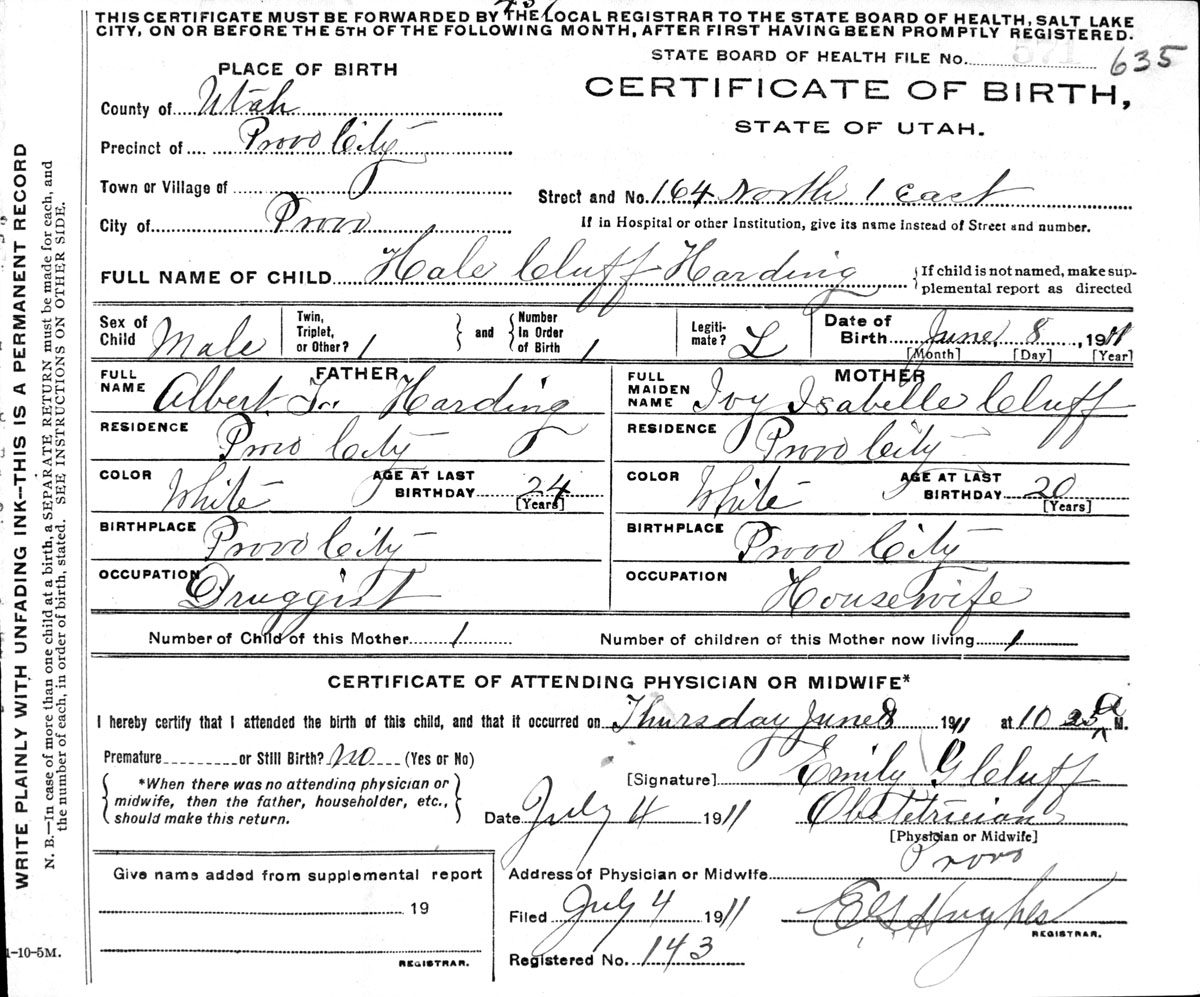 THIS CERTIFICATE MUST BE FORWARDED BY THE LOCAL REGISTRAR TO THE STATE BOARD OF HEALTH, SALT LAKE
CITY, ON OR BEFORE THE 5TH OF THE FOLLOWING MONTH, AFTER FIRST HAVING BEEN PROMPTLY REGISTERED.
STATE BOARD OF HEALTH FILE No. 571 635
PLACE OF BIRTH
CERTIFICATE OF BIRTH,
STATE OF UTAH.
County of Utah
Precinct of Provo City
Town or Village of
Street and No. 164 North 1 East
City of Provo
If in Hospital or other Institution, give its name instead of Street and number.
FULL NAME OF CHILD Hale Cluff Harding
{If child is not named, make sup-
plemental report as directed
Sex of Child Male
Twin, Triplet, or Other? 1 } and { Number In Order of Birth 1
Legiti-mate? L
Date of Birth June 8, 1911
[Month] [Day] [Year]
FATHER
FULL NAME Albert Harding
RESIDENCE Provo City
COLOR White AGE AT LAST BIRTHDAY 24
[Years]
BIRTHPLACE Provo City
OCCUPATION Druggist
MOTHER
FULL MAIDEN NAME Ivy Isabelle Cluff
RESIDENCE Provo City
COLOR White AGE AT LAST BIRTHDAY 20
[Years]
BIRTHPLACE Provo City
OCCUPATION Housewife
Number of Child of this Mother 1 Number of children of this Mother now living 1
CERTIFICATE OF ATTENDING PHYSICIAN OR MIDWIFE*
I hereby certify that I attended the birth of this child, and that it occurred on Thursday June 8 1911 at 10 25 A M.
Premature or Still Birth? No (Yes or No)
*When there was no attending physician or
midwife, then the father, householder, etc.,
should make this return.
[Signature] Emily G Cluff
Date July 4 1911 Obstetrician
[Physician or Midwife]
Address of Physician or Midwife Provo
Give name added from supplemental report
19
REGISTRAR.
Filed July 4 1911 E G Hughes
REGISTRAR.
Registered No. 143
WRITE PLAINLY WITH UNFADING INK—THIS IS A PERMANENT RECORD
N. B.—In case of more than one child at a birth, a SEPARATE RETURN must be made for each, and
the number of each, in order of birth, stated. SEE INSTRUCTIONS ON OTHER SIDE.
1-10-5M.